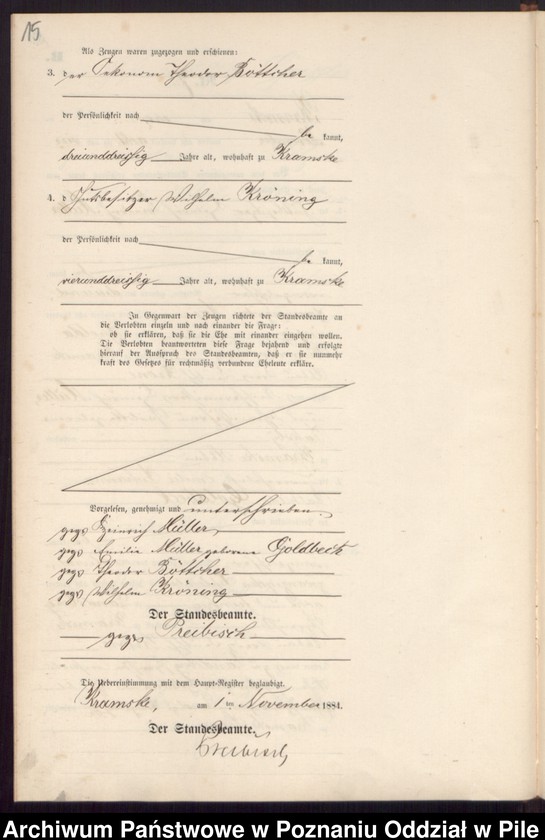 15
Als Zeugen waren zugezogen und erschienen:
3. der Oekonom Theodor Böttcher
der Persönlichkeit nach
be kannt,
dreiunddreißig Jahre alt, wohnhaft zu Kramske
4. d Gutsbesitzer Wilhelm Kröning
der Persönlichkeit nach
be kannt,
vierunddreißig Jahre alt, wohnhaft zu Kramske
In Gegenwart der Zeugen richtete der Standesbeamte an
die Verlobten einzeln und nach einander die Frage:
ob sie erklären, daß sie die Ehe mit einander eingehen wollen.
Die Verlobten beantworteten diese Frage bejahend und erfolgte
hierauf der Ausspruch des Standesbeamten, daß er sie nunmehr
kraft des Gesetzes für rechtmäßig verbundene Eheleute erkläre.
Vorgelesen, genehmigt und unterschrieben.
gez. Heinrich Müller
gez. Emilie Müller geborene Goldbeck
gez. Theodor Böttcher
gez. Wilhelm Kröning
Der Standesbeamte.
gez. Preibisch
Die Uebereinstimmung mit dem Haupt-Register beglaubigt.
Kramske, am 1 ten November 1884.
Der Standesbeamte.
Preibisch
Archiwum Państwowe w Poznaniu Oddział w Pile